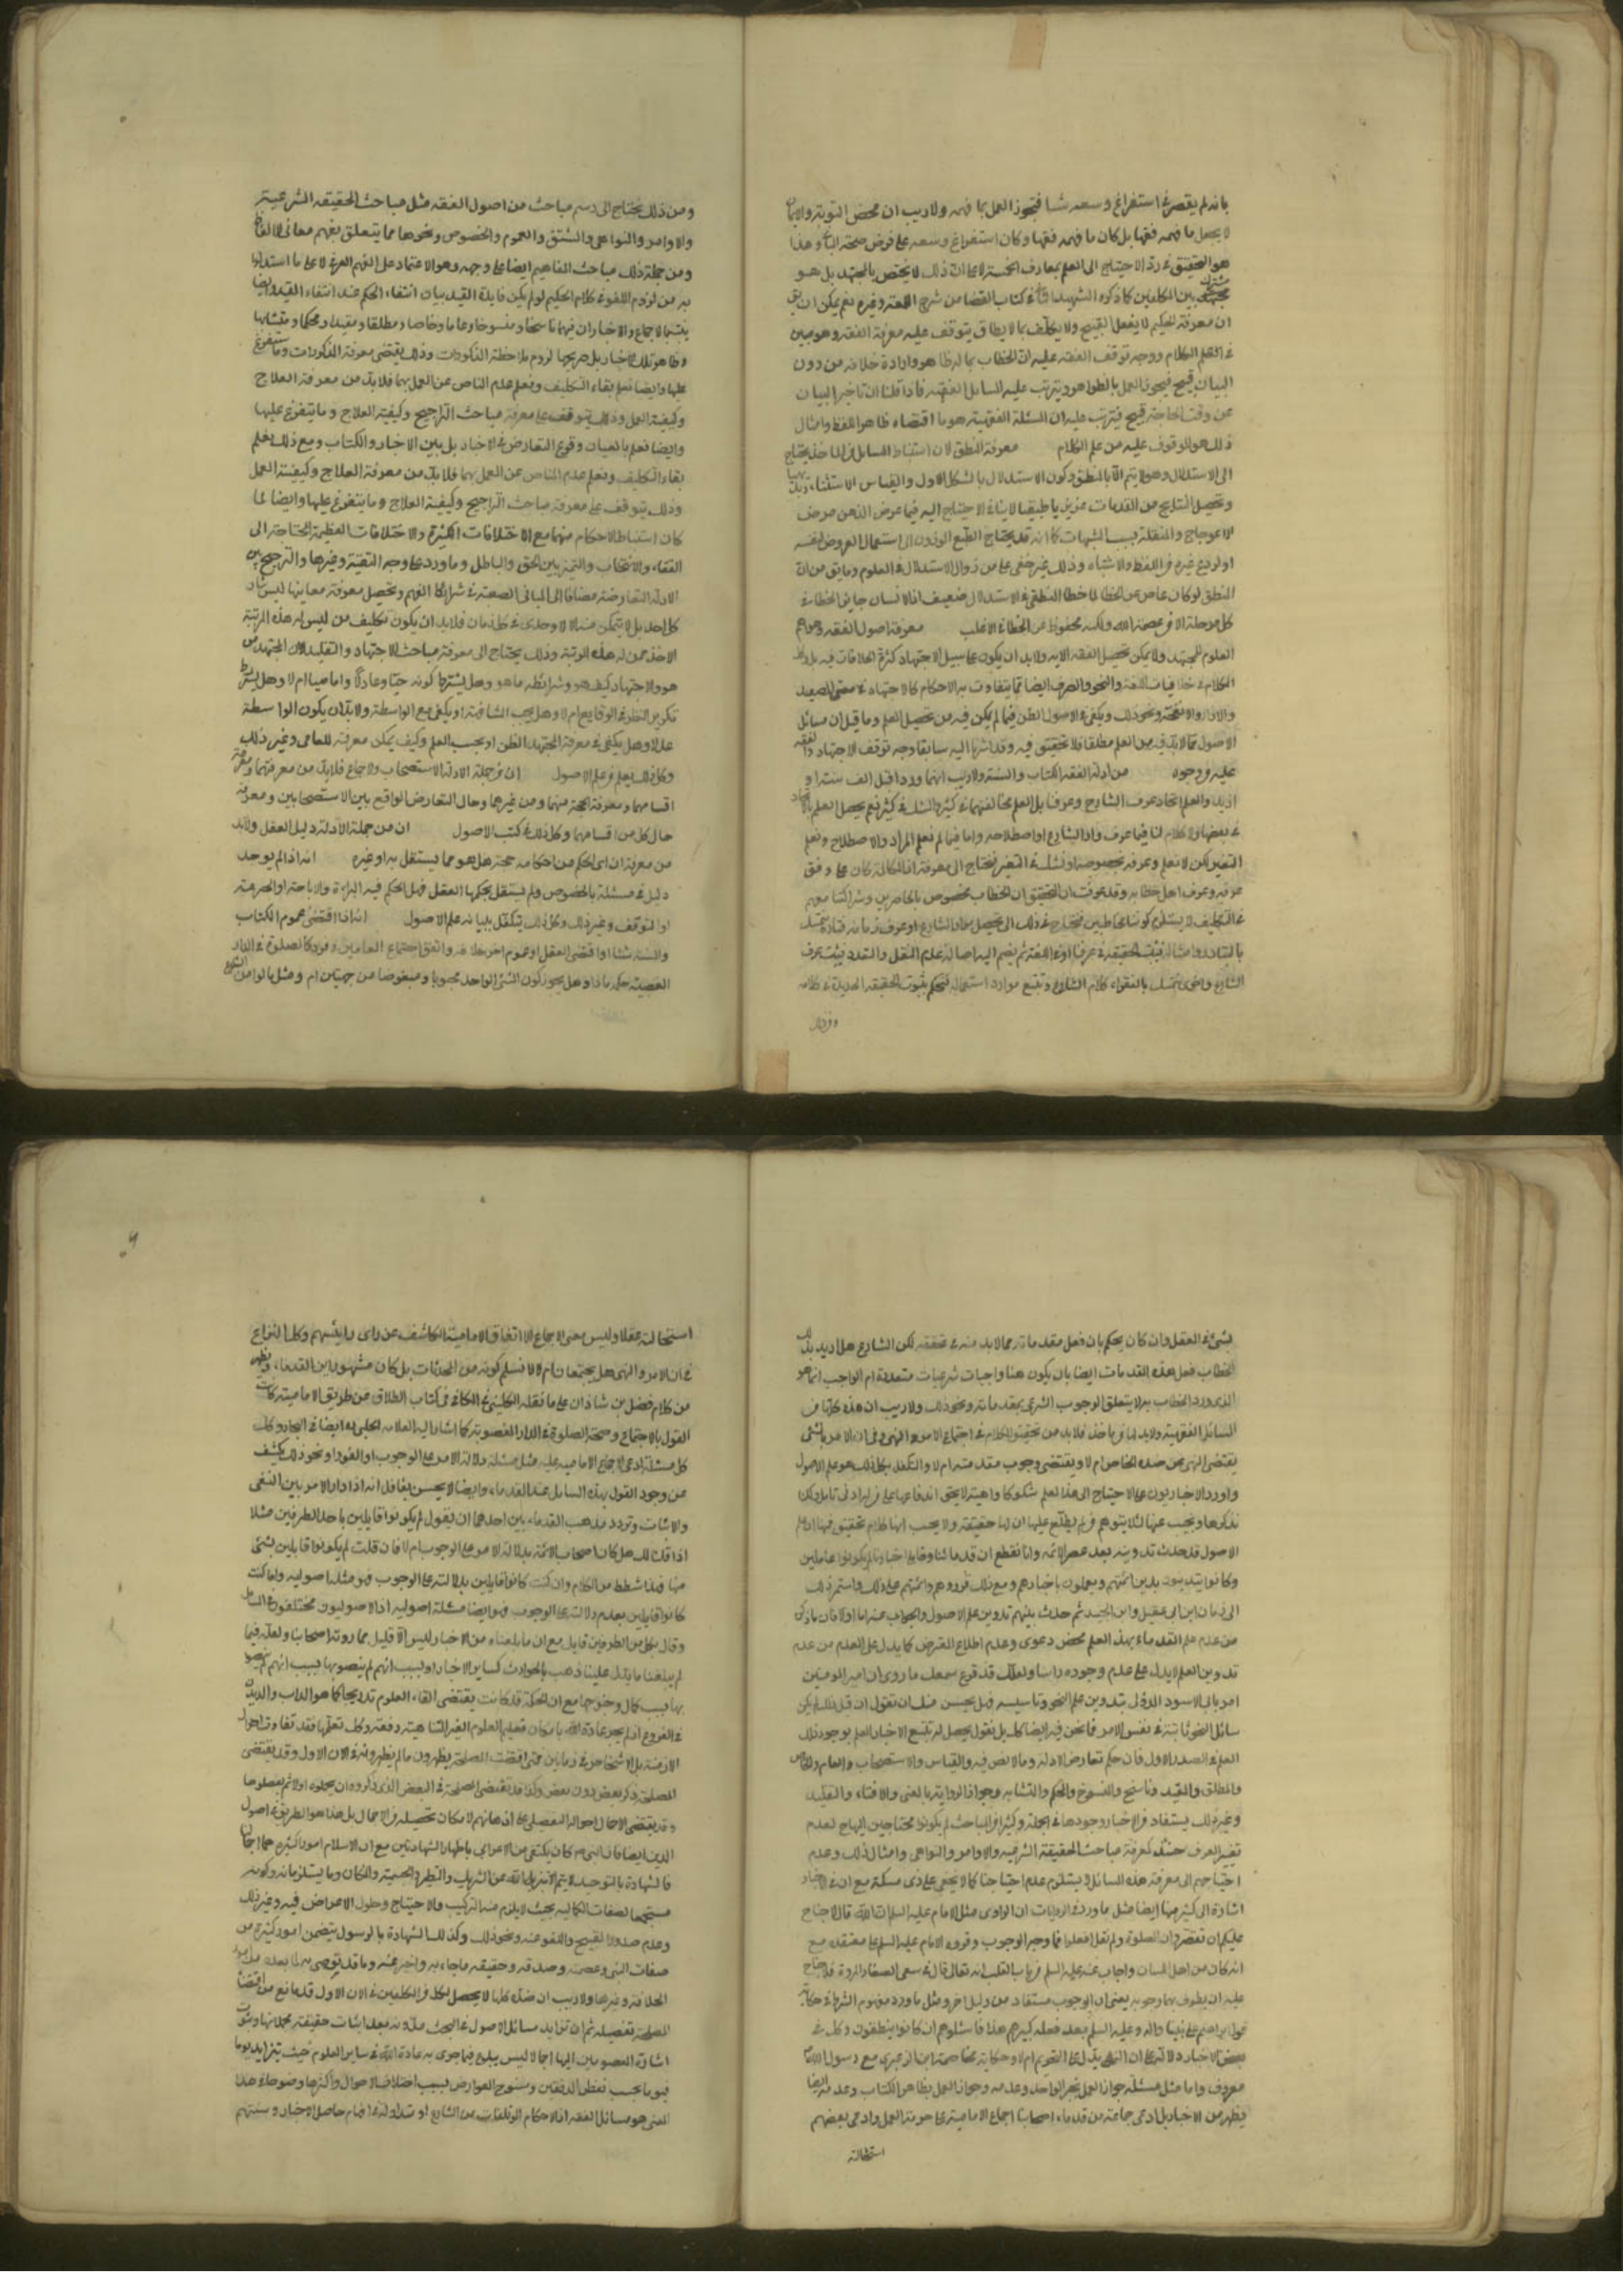 بانه لم يقصر في استفراغ وسعه شيئا فيجوز العمل بما فهمه ولا ريب ان محض التوبة والايمان
لا يجعل ما فهمه فقها بل كان ما فهمه فقها وكان استفراغ وسعه على فرض صحة وهذا
هو التحقيق في رد الاحتياج الى العلم بمعارف الخمسة لا على ان ذلك لا يختص بالمجتهد بل هو
مشترك بين المكلفين كما ذكره الشهيد الثاني في كتاب القضا من شرح اللمعة وغيره نعم يمكن ان يق
ان معرفة الحكيم لا يفعل القبيح ولا يكلف بما لا يطاق يتوقف عليه معرفة الفقه وهو مبين
في العلم الكلام ووجه توقف الفقه عليه ان الخطاب بما له ظاهر وارادة خلافه من دون
البيان قبيح فيجوز العمل بالظواهر ويترتب عليه المسايل الفقهية فاذا قلنا ان تاخير البيان
عن وقت الحاجة قبيح فيترتب عليه ان المسئلة الفقهية هو ما اقتضاه ظاهر اللفظ وامثال
ذلك هو الموقوف عليه من علم الكلام معرفة المنطق لان استنباط المسايل من الماخذ يحتاج
الى الاستدلال وهو لا يتم الا بالمنطق وكون الاستدلال بالشكل الاول والقياس الاستثنائي بديهيا
وتحصيل النتايج من المقدمات عزيزيا طبيعيا لا ينافي الاحتياج اليه فيما عرض الذهن مرض
الاعوجاج والغفلة بسبب الشبهات كما انه قد يحتاج الطبع الموزون الى استعمال العروض لنفسه
او لردع غيره في اللفظ والاشتباه وذلك غير خفي على من زوال الاستدلال في العلوم وما يق من ان
المنطق لو كان عاصما عن الخطا لما خطا المنطقي في الاستدلال ضعيف اذ الانسان جايز الخطا في
كل مرحلة الا من عصمه الله ولكنه محفوظ عن الخطا في الاغلب معرفة اصول الفقه وهو اهم
العلوم للمجتهد ولا يمكن تحصيل الفقه الا به ولا بد ان يكون على سبيل الاجتهاد لكثرة الخلافات فيه بل وكذا
الكلام في خلافيات اللغة والنحو والصرف ايضا مما يتفاوت به الاحكام كالاجتهاد في معنى الصعيد
والاذا والانفحة ونحو ذلك ويكفي في الاصول الظن فيما لم يكن فيه من تحصيل العلم وما قيل ان مسائل
الاصول مما لا بد فيه من العلم مطلقا فلا تحقيق فيه وقد اشرنا اليه سابقا وجه توقف الاجتهاد والفقه
عليه وجوه من ادلة الفقه الكتاب والسنة ولا ريب انهما وردا قبل الف سنة او
ازيد والعلم باتحاد عرف الشارع وعرفنا بل العلم بمخالفتهما في كثير والشك في كثير نعم يحصل العلم بالاتحاد
في بعضها ولا كلام لنا فيما عرف مراد الشارع او اصطلاحه واما فيما لم نعلم المراد والاصطلاح ونعلم
التغير لكن لا نعلم وعرفه بخصوصه او نشك في التغير فنحتاج الى معرفة ان المكالمة كان على وفق
عرفه وعرف اهل خطابه وقد عرفت ان التحقيق ان الخطاب مخصوص بالحاضرين وشراكتنا معهم
في التكليف لا يستلزم كوننا مخاطبين فنحتاج في ذلك الى تحصيل مراد الشارع او عرف زمانه فتارة نتمسك
بالتبادر وامثاله فيثبت الحقيقة في عرفنا او في اللغة ثم يضم اليه اصالة عدم النقل والتعدد فيثبت عرف
الشارع واخرى نتمسك بالاستقراء كلام الشارع ونتتبع موارد استعماله فنحكم بثبوت الحقيقة الجديدة في كلامه
ومن ذلك
ومن ذلك يحتاج الى رسم مباحث من اصول الفقه مثل مباحث الحقيقة الشرعية
والاوامر والنواهي والمشتق والعموم والخصوص ونحوها مما يتعلق بفهم معاني الالفاظ
ومن جملة ذلك مباحث المفاهيم ايضا على وجه وهو الاعتماد على الفهم العرفي لا على ما استدلوا
به من لزوم اللغو في كلام الحكيم لو لم يكن فايدة القيد بيان انتفاء الحكم عند انتفاء القيد وايضا
يثبت بالاجماع والاخبار ان فيهما ناسخا ومنسوخا وعاما وخاصا ومطلقا ومقيدا ومحكما ومتشابها
وظاهر تلك الاخبار بل صريحها لزوم ملاحظة المذكورات وذلك يقتضي معرفة المذكورات وما يتفرع
عليها وايضا نعلم بقاء التكليف ونعلم عدم المناص عن العمل بهما فلا بد من معرفة العلاج
وكيفية العمل وذلك يتوقف على معرفة مباحث التراجيح وكيفية العلاج وما يتفرع عليها
وايضا نعلم بالعيان وقوع التعارض في الاخبار بل بين الاخبار والكتاب ومع ذلك نعلم
بقاء التكليف ونعلم عدم المناص عن العمل بهما فلا بد من معرفة العلاج وكيفية العمل
وذلك يتوقف على معرفة مباحث التراجيح وكيفية العلاج وما يتفرع عليها وايضا لما
كان استنباط الاحكام منهما مع الاختلافات الكثيرة والاختلافات العظيمة المحتاجة الى
الفقاء والانتخاب والتميز بين الحق والباطل وما ورد على وجه التقية وغيرها والترجيح بين
الادلة المتعارضة مضافا الى المباني الصعبة في شرائط الفهم وتحصيل معرفة معانيها ليس شان
كل احد بل لا يتمكن منه الا اوحدي في كل زمان فلا بد ان يكون تكليف من ليس له هذه المرتبة
الاخذ ممن له هذه الرتبة وذلك يحتاج الى معرفة مباحث الاجتهاد والتقليد لان المجتهد من
هو والاجتهاد كيف هو وشرائطه ما هو وهل يشترط كونه حيا وعادلا واماميا ام لا وهل يشترط
تكرير النظر في الوقايع ام لا وهل يجب المشافهة او يكفي مع الواسطة ولا بد ان يكون الواسطة
عدلا وهل يكفي في معرفة المجتهد الظن او يجب العلم وكيف يمكن معرفته للعامي وغير ذلك
وكل ذلك يعلم في علم الاصول ان من جملة الادلة الاستصحاب والاجماع فلا بد من معرفتهما ومعرفة
اقسامهما ومعرفة الحجة منهما ومن غيرهما وحال التعارض الواقع بين الاستصحابين ومعرفة
حال كل من اقسامهما وكل ذلك في كتب الاصول ان من جملة الادلة دليل العقل ولا بد
من معرفة ان اي الحكم من احكامه حجة هل هو مما يستقل به او غيره انه اذا لم يوجد
دليل في مسئلة بالخصوص ولم يستقل بحكمها العقل فهل الحكم فيه البرائة والاباحة او الحرمة
او التوقف وغير ذلك وكل ذلك يتكفل ببيانه علم الاصول انه اذا اقتضى عموم الكتاب
والسنة شيئا او اقتضى العقل او عموم اخر خلافه واتفق اجتماع العامين في مورد كالصلوة في الدار
الغصبية حكمه ماذا وهل يجوز كون الشيء الواحد محبوبا ومبغوضا من جهتين ام لا ومثل ما لو امر الشارع
لشيء في العقل وان كان يحكم بان فعل مقدماته مما لا بد منه في تحققه لكن الشارع هل اريد بذلك
الخطاب فعل هذه المقدمات ايضا بان يكون هنا واجبات شرعيات متعددة ام الواجب انما هو
الذي ورد الخطاب به ولا يتعلق الوجوب الشرعي بمقدماته ونحو ذلك ولا ريب ان هذه كلها من
المسائل الفقهية ولا بد لها من ماخذ فلا بد من تحقيق الكلام في اجتماع الامر والنهي وفي ان الامر بالشيء
يقتضي النهي عن ضده الخاص ام لا ويقتضي وجوب مقدمته ام لا والمتكفل بكل ذلك هو علم الاصول
واورد الاخباريون على الاحتياج الى هذا العلم شكوكا واهية لا يخفى اندفاعها على من له ادنى تامل ولكنا
نذكرها ونجيب عنها لئلا يتوهم من لم يطلع عليها ان لها حقيقة ولا يحسب انها كلام تحقيق فمنها ان علم
الاصول قد حدث تدوينه بعد عصر الائمة وانا نقطع ان قدمائنا ورواة اخبارنا لم يكونوا عالمين
وكانوا يتدينون بدين ائمتهم ويعملون باخبارهم ومع ذلك قرروهم ائمتهم على ذلك واستمر ذلك
الى زمان ابن ابي عقيل وابن الجنيد ثم حدث بينهم تدوين علم الاصول والجواب عنه اما اولا فان ما ذكره
من عدم علم القدماء بهذا العلم محض دعوى وعدم اطلاع المعترض كما يدل على العدم من عدم
تدوين العلم لا يدل على عدم وجوده راسا ولعلك قد قرع سمعك ما روى ان امير المؤمنين
امر بابي الاسود الدؤلي بتدوين علم النحو وتاسيسه فهل يحسن منك ان تقول ان قبل ذلك لم يكن
مسائل النحو ثابتة في نفس الامر فما نحن فيه ايضا كك بل نقول يحصل لمن تتبع الاخبار العلم بوجود ذلك
العلم في الصدر الاول فان حكم تعارض الادلة وما لا نص فيه والقياس والاستصحاب والعام والخاص
والمطلق والمقيد وناسخ والمنسوخ والمحكم والمتشابه وجواز الرواية بالمعنى والافتاء والتقليد
وغير ذلك يستفاد من الاخبار وجودها في الجملة وكثيرا من المباحث لم يكونوا محتاجين اليها لعدم
تغير العرف حينئذ كمعرفة مباحث الحقيقة الشرعية والاوامر والنواهي وامثال ذلك وعدم
احتياجهم الى معرفة هذه المسائل لا يستلزم عدم احتياجنا كما لا يخفى على ذي مسكة مع ان في الاخبار
اشارة الى كثير منها ايضا مثل ما ورد في الروايات ان الراوي سئل الامام عليه السلم ان الله قال لا جناح
عليكم ان تقصروا من الصلوة ولم يقل افعلوا فما وجه الوجوب وقرره الامام عليه السلم على معتقده مع
انه كان من اهل اللسان واجاب عنه عليه السلم من باب القلب انه تعالى قال في سعي الصفا والمروة فلا جناح
عليه ان يطوف بهما وجوبه يعني ان الوجوب مستفاد من دليل اخر ومثل ما ورد مفهوم الشرط في حكاية
قول ابراهيم على نبينا واله وعليه السلم بعد فعله كبيرهم هذا فاسئلوهم ان كانوا ينطقون وكل في
بعض الاخبار دلالة على ان النهي يدل على التحريم ام لا وحكاية مخاصمة ابن الزبعرى مع رسول الله
معروف واما مثل مسئلة جواز العمل بخبر الواحد وعدمه وجواز العمل بظاهر الكتاب وعدمه ايضا
يظهر من الاخبار بل ادعى جماعة من قدماء اصحابنا اجماع الامامية على حرمة العمل وادعى بعضهم
استحالته
استحالته عقلا وليس معنى الاجماع الا اتفاق الامامية الكاشف عن راى رئيسهم وكذا النزاع
في ان الامر والنهي هل يجتمعان ام لا لا نسلم كونه من المحدثات بل كان مشهورا بين القدماء ويظهر
من كلام فضل بن شاذان على ما نقله الكليني في الكافي في كتاب الطلاق عن طريق الامامية كان
القول بالاجتماع وصحة الصلوة في الدار الغصوبة كما اشار اليه العلامة المجلسي ره ايضا في البحار وكك
كل مسئلة ادعى الاجماع الامامية عليه مثل مسئلة دلالة الامر على الوجوب او الفور او نحو ذلك يكشف
عن وجود القول بهذه المسايل عند القدماء وايضا لا يحسن بعاقل انه اذا دار الامر بين النفي
والاثبات وتردد مذهب القدماء بين احدهما ان يقول لم يكونوا قايلين باحد الطرفين مثلا
اذا قلت لك هل كان اصحاب الائمة بدلالة الامر على الوجوب ام لا فان قلت لم يكونوا قايلين بشيء
منها فهذا شطط من الكلام وان كنت كانوا قايلين بدلالته على الوجوب فهو مسئلة اصولية واما كنت
كانوا قايلين بعدم دلالته على الوجوب فهو ايضا مسئلة اصولية اذ الاصوليون مختلفون في المسايل
وقال بكل من الطرفين قايل مع ان ما بلغنا من الاخبار ليس الا قليل مما روته اصحابنا ولعله فيما
لم يبلغنا ما يدل علينا ذهب بالحوادث كساير الاخبار او لسبب انهم لم ينصوا بها لسبب انهم لم ينصوا
بها بسبب كمال وضوحها مع ان الحكمة قد كانت يقتضي القاء العلوم تدريجا كما هو الداب والديدن
في الفروع اذ لم يجر عادة الله بامكان تعليم العلوم الغير المتناهية دفعة وكك تعلمها فقد تفاوت احوال
الازمنة بل الاشخاص في زمانين فمتى اقتضت المصلحة يظهرون ما لم يظهروا في الان الاول وقد يقتضي
المصلحة ذكر بعض دون بعض وكذا قد يقتضي المصلحة في البعض الذي ذكروه ان يجملوه اولا ثم يفصلوها
وقد يقتضي الاجمال احوال التفصيل على اذهانهم لامكان تحصيله من الاجمال بل هذا هو الطريق في اصول
الدين ايضا فان النبي ص كان يكتفي من الاعرابي باظهار الشهادتين مع ان الاسلام امور كثيرة هما اجمال
فالشهادة بالتوحيد لا يتم الا بتنزيه الله عن الشريك والنظير والجسمية والمكان وما يستلزمانه وكونه
مستجمعا لصفات الكمالية بحيث لا يلزم منه التركيب والاحتياج وحلول الاعراض فيه وغير ذلك
وعدم صدور القبيح واللغو عنه ونحو ذلك وكذلك الشهادة بالرسول يتضمن امور كثيرة من
صفات النبي وعصمته وصدقه وحقيقة ما جاء به واخبر عنه وما قد يوصى به لما بعده من امر
الخلافة وغيرها ولا ريب ان هذه كلها لا يحصل لكل من المكلفين في الان الاول قد مانع من اقتضاء
المصلحة تفصيله ثم ان تزايد مسائل الاصول في البحث مدونة بعد اثبات حقيقة مجملاتها وثبوت
اشارة المعصومين اليها اجمالا ليس ببدع فيما جرى به عادة الله في ساير العلوم حيث يتزايد يوما
فيوما بحسب تفطن المدققين وسنوح العوارض بسبب اختلاف الاحوال واكثرها وضوحا في هذا
المعنى هو مسائل الفقه اذ الاحكام المتلقات من الشارع او متداولة في افهام حاصل الاخبار وسنتهم